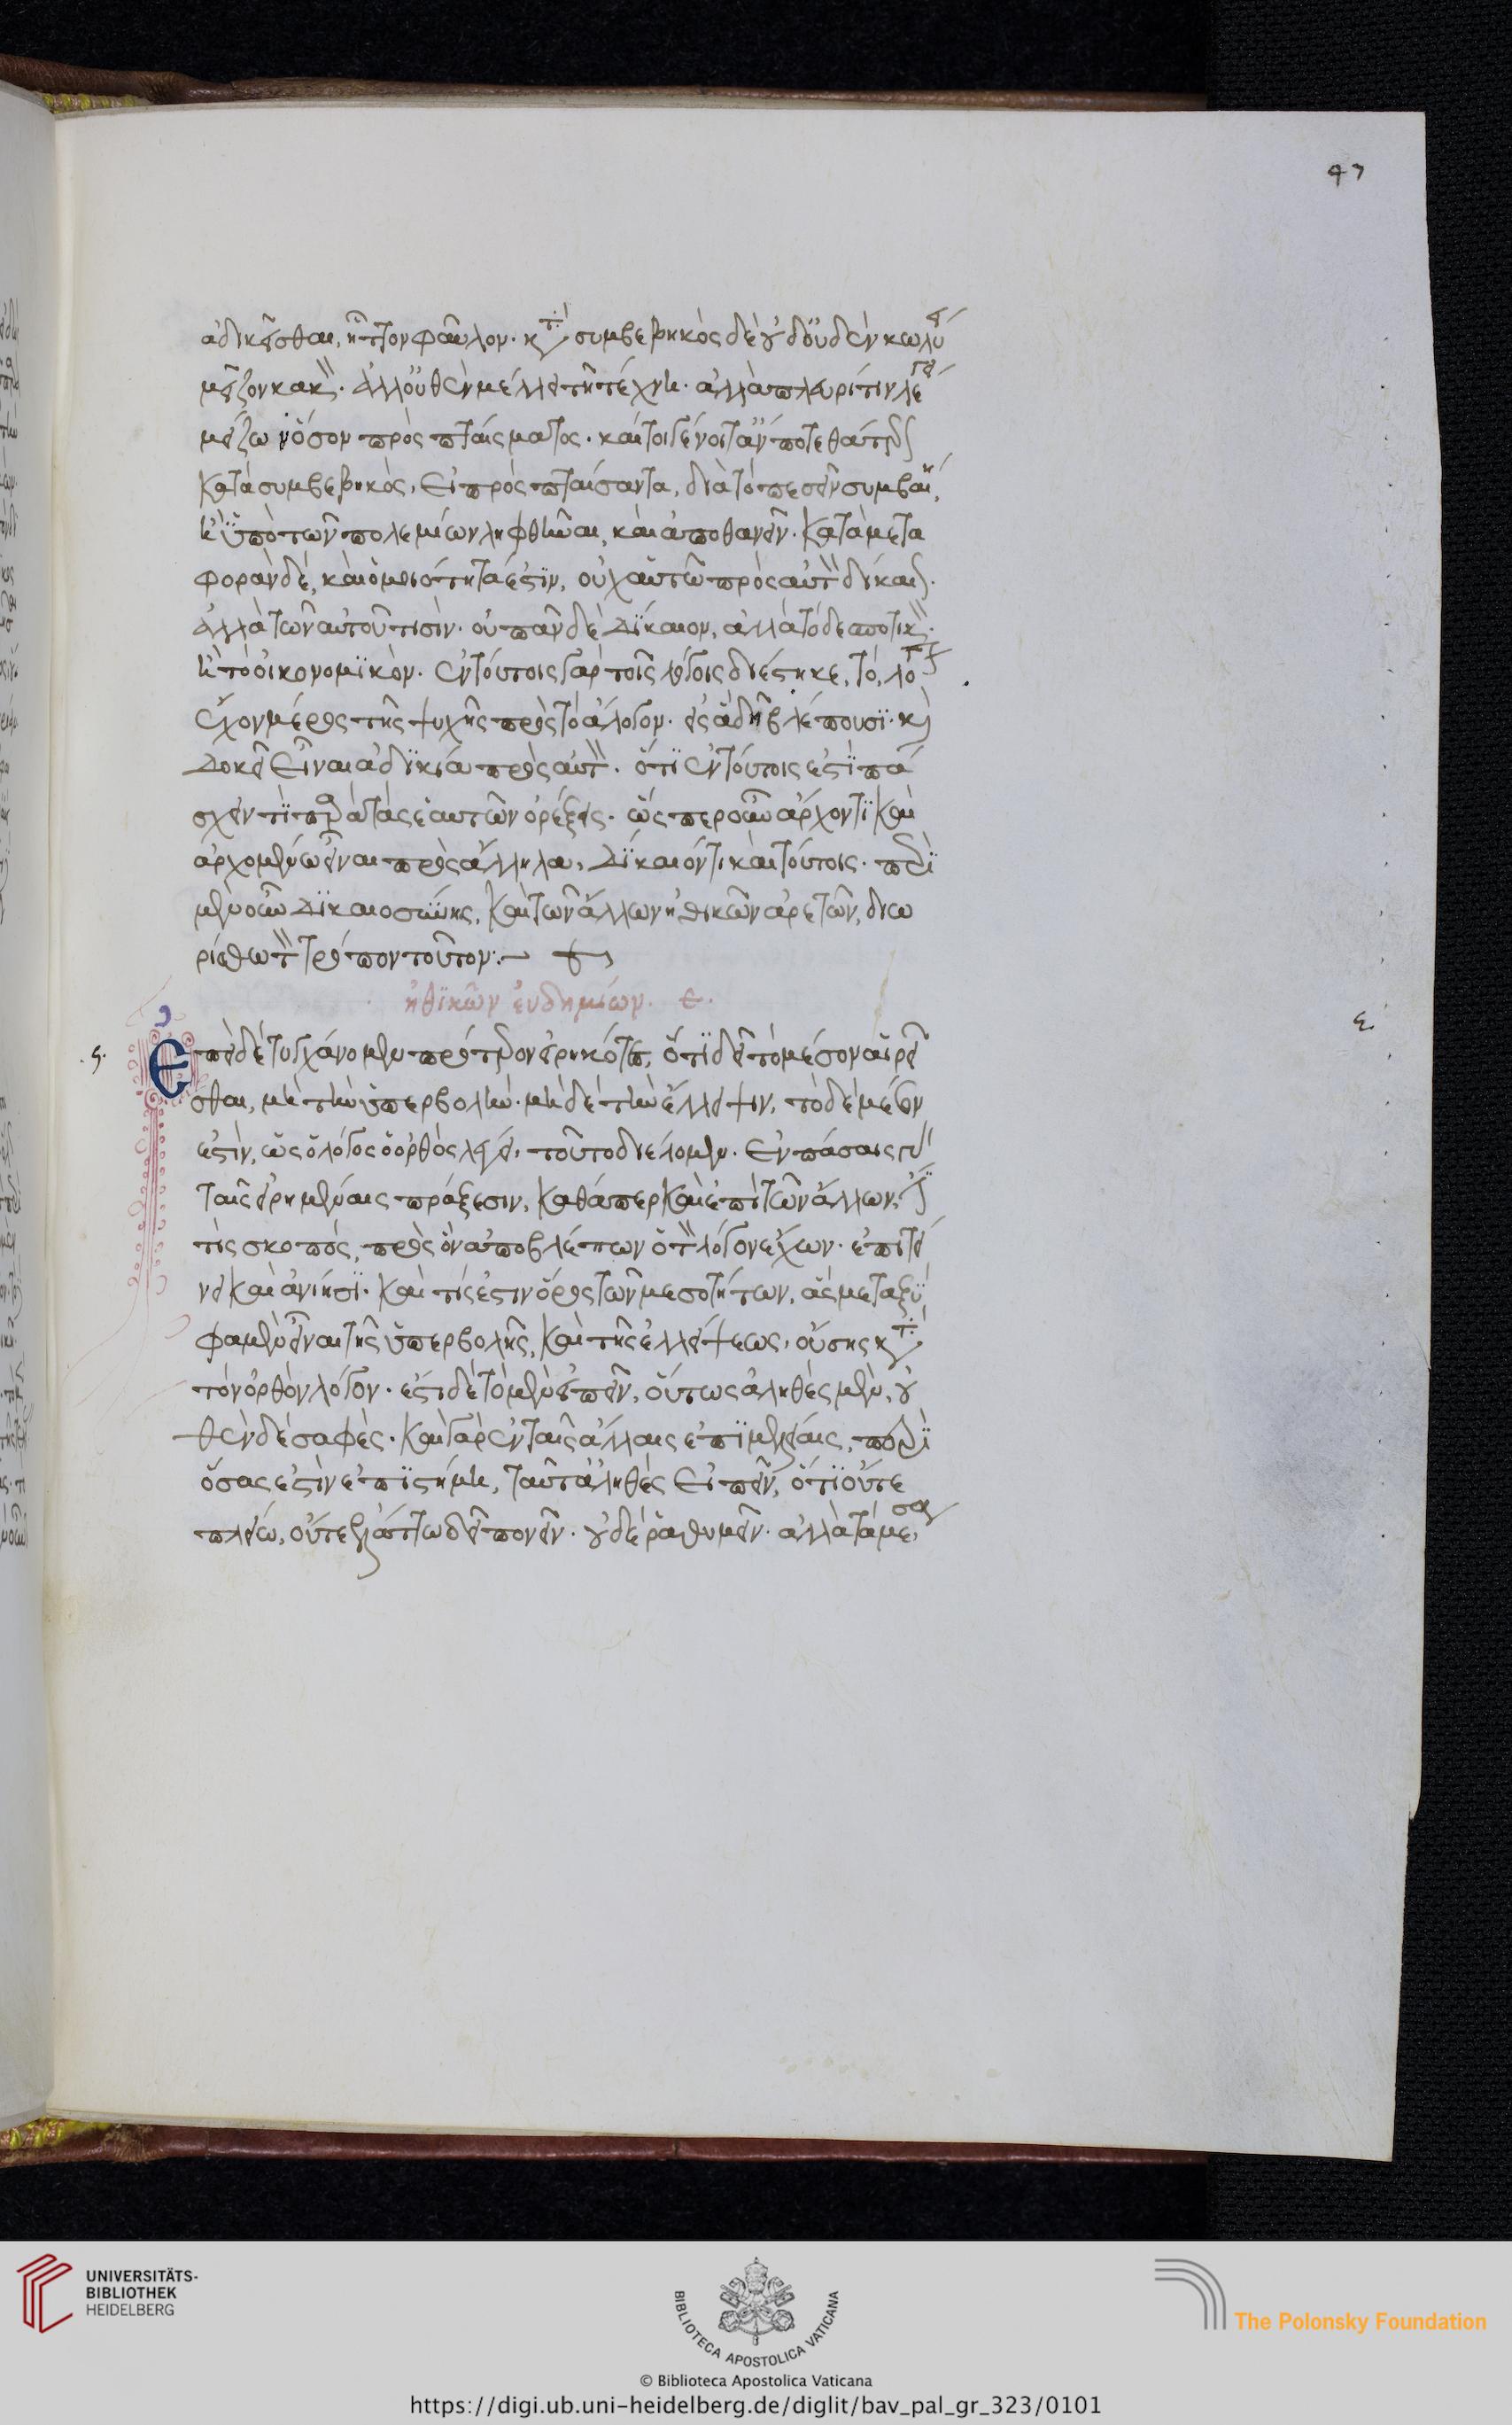 47
ἀδικεῖσθαι, ἧττον φαῦλον· κατὰ συμβεβηκὸς δὲ οὐδ' οὐδὲν κωλύει
μεῖζον κακὸν· ἀλλ' οὐθὲν μέλλει τῆ τέχνη· ἀλλὰ πλευρίτιν λέγει
μείζω νόσον προσπταίσματος· καίτοι γένοιτ' ἄν ποτε θάτερον
κατὰ συμβεβηκὸς, εἰ προσπταίσαντα, διὰ τὸ πεσεῖν συμβαίη,
ἢ ὑπὸ τῶν πολεμίων ληφθῆναι, καὶ ἀποθανεῖν· κατὰ μετα
φορὰν δὲ, καὶ ὁμοιότητα ἐστὶν, οὐχ αὑτῶ πρὸς αὑτὸν δίκαιον·
ἀλλὰ τῶν αὐτοῦ τισίν· οὐ πᾶν δὲ δίκαιον, ἀλλὰ τὸ δεσποτικὸν·
ἢ τὸ οἰκονομικὸν· ἐν τούτοις γὰρ τοῖς λόγοις διέστηκε, τὸ, λόγον
ἔχον μέρος τῆς ψυχῆς πρὸς τὸ ἄλογον· εἰς ἃ δὴ βλέπουσι· καὶ
δοκεῖ εἶναι ἀδικία πρὸς αὑτὸν· ὅτι ἐν τούτοις ἐστὶ πά
σχειν τι παρὰ τὰς ἑαυτῶν ὀρέξεις· ὥσπερ οὖν ἄρχοντι καὶ
ἀρχομένω εἶναι πρὸς ἄλληλα, δίκαιόν τι καὶ τούτοις· περὶ
μὲν οὖν δικαιοσύνης, καὶ τῶν ἄλλων ἠθικῶν ἀρετῶν, διω
ρίσθω τὸν τρόπον τοῦτον:—
ἠθικῶν εὐδημίων. ε.
.ϛ. Ἐπεὶ δὲ τυγχάνομεν πρότερον εἰρηκότες, ὅτι δεῖ τὸ μέσον αἱρεῖ
σθαι, μὴ τὴν ὑπερβολὴν· μηδὲ τὴν ἔλλειψιν, τὸ δὲ μέσον
ἐστὶν, ὡς ὁ λόγος ὁ ὀρθὸς λέγει, τοῦτο διέλομεν. ἐν πάσαις γὰρ
ταῖς εἰρημέναις πράξεσιν, καθάπερ καὶ ἐπὶ τῶν ἄλλων, ἐστί
τις σκοπός, πρὸς ὃν ἀποβλέπων ὁ τὸν λόγον ἔχων· ἐπιτεί
νει καὶ ἀνίησι· καὶ τίς ἐστιν ὅρος τῶν μεσοτήτων, ἃς μεταξύ
φαμὲν εἶναι τῆς ὑπερβολῆς, καὶ τῆς ἐλλείψεως, οὔσης κατὰ
τὸν ὀρθὸν λόγον· ἔστι δὲ τὸ μὲν εἰπεῖν, οὕτως ἀληθὲς μὲν, οὐ
θὲν δὲ σαφὲς· καὶ γὰρ ἐν ταῖς ἄλλαις ἐπιμελείαις, περὶ
ὅσας ἐστὶν ἐπιστήμη, ταῦτ' ἀληθὲς εἰπεῖν, ὅτι οὔτε
πλείω, οὔτε ἐλάττω δεῖ πονεῖν· οὐδὲ ῥαθυμεῖν· ἀλλὰ τὰ μέσα
UNIVERSITÄTS-
BIBLIOTHEK
HEIDELBERG
BIBLIOTECA APOSTOLICA VATICANA
The Polonsky Foundation
© Biblioteca Apostolica Vaticana
https://digi.ub.uni-heidelberg.de/diglit/bav_pal_gr_323/0101